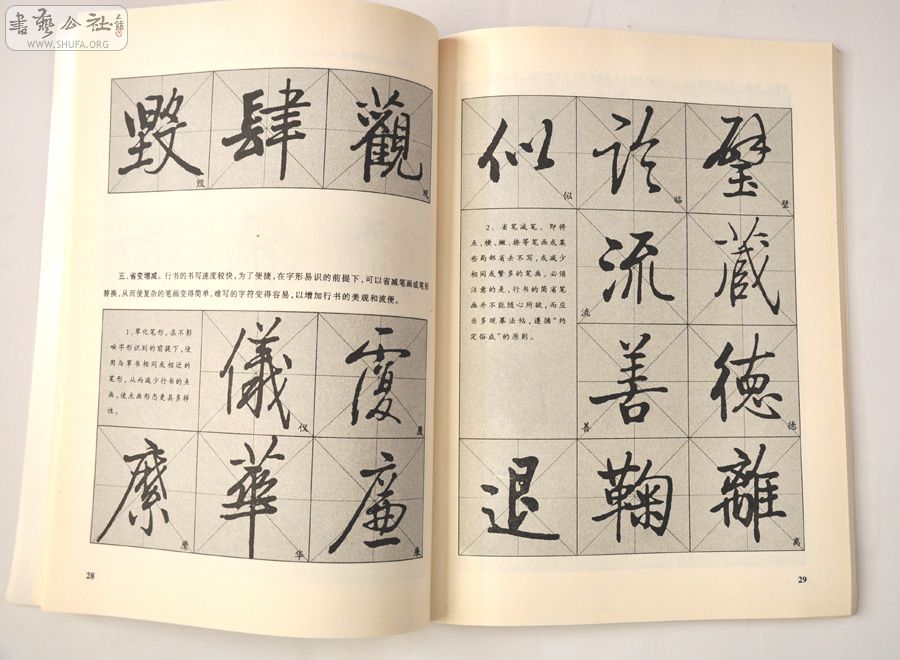 書藝公社
WWW.SHUFA.ORG
毀 肆 觀
毁 观
五、省变增减。行书的书写速度较快,为了便捷,在字形易识的前提下,可以省减笔画或笔形
替换,从而使复杂的笔画变得简单,难写的字符变得容易,以增加行书的美观和流便。
1、草化笔形。在不影
响字形识到的前提下,使
用与草书相同或相近的
笔形。从而减少行书的点
画,使点画形态更具多样
性。
儀 覆
仪
華 廉
华 廉
28
似 璧
似 临
2、省笔减笔。即将
点、横、撇、捺等笔画或某
些局部省去不写,或减少
相同或繁多的笔画。必须
注意的是,行书的简省笔
画并不能随心所欲,而应
当多观摹法帖,遵循“约
定俗成”的原则。
流 藏
流
善 德
善 德
退 鞠 離
离
29